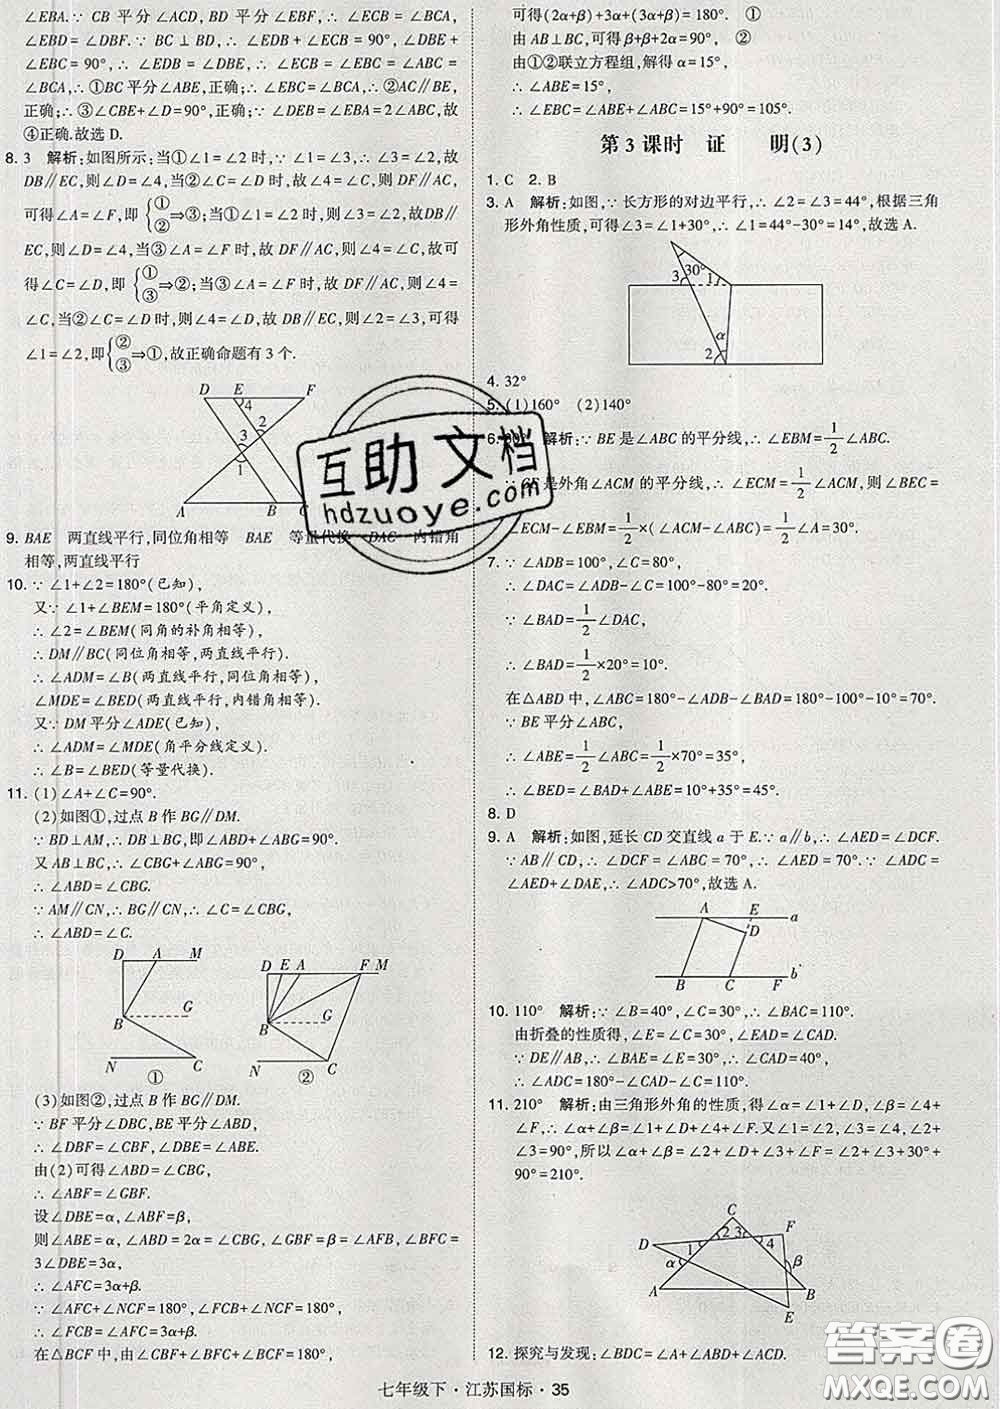 ∠EBA.∵ CB 平分∠ACD,BD 平分∠EBF,∴ ∠ECB=∠BCA,
∠EBD=∠DBF.∵ BC⊥BD,∴ ∠EDB+∠EBC=90°,∠DBE+
∠EBC=90°,∴ ∠EDB=∠DBE,∴ ∠ECB=∠EBC=∠ABC=
∠BCA,∴ ①BC平分∠ABE,正确;∴ ∠EBC=∠BCA,∴ ②AC∥BE,
正确;∴ ③∠CBE+∠D=90°,正确;∵ ∠DEB=∠EBA=2∠ABC,故
④正确.故选 D.
8. 3 解析:如图所示:当①∠1=∠2时,∵ ∠1=∠3,∴ ∠2=∠3,故
DB∥EC,则∠D=∠4,当②∠C=∠D时,故∠4=∠C,则DF∥AC,
可得∠A=∠F,即{①②⇒③;当①∠1=∠2时,∵ ∠2=∠3,故DB∥
EC,则∠D=∠4,当③∠A=∠F时,故DF∥AC,则∠4=∠C,故可
得∠C=∠D,即{①③⇒②;当③∠A=∠F时,故 DF∥AC,则∠4=
∠C,当②∠C=∠D时,则∠4=∠D,故 DB∥EC,则∠2=∠3,可得
∠1=∠2,即{②③⇒①,故正确命题有3个.
D E F
4
2
3
1
A B C
9. BAE 两直线平行,同位角相等 BAE 等量代换 DAC 内错角
相等,两直线平行
10. ∵ ∠1+∠2=180°(已知),
又∵ ∠1+∠BEM=180°(平角定义),
∴ ∠2=∠BEM(同角的补角相等),
∴ DM∥BC(同位角相等,两直线平行).
∴ ∠ADM=∠B(两直线平行,同位角相等),
∠MDE=∠BED(两直线平行,内错角相等).
又∵ DM平分∠ADE(已知),
∴ ∠ADM=∠MDE(角平分线定义).
∴ ∠B=∠BED(等量代换).
11. (1)∠A+∠C=90°.
(2)如图①,过点B作BG∥DM.
∵ BD⊥AM,∴ DB⊥BG,即∠ABD+∠ABG=90°.
又 AB⊥BC,∴ ∠CBG+∠ABG=90°,
∴ ∠ABD=∠CBG.
∵ AM∥CN,∴ BG∥CN,∴ ∠C=∠CBG,
∴ ∠ABD=∠C.
D A M
B G
N C
①
D E A F M
B G
N C
②
(3)如图②,过点B作BG∥DM.
∵ BF平分∠DBC,BE平分∠ABD,
∴ ∠DBF=∠CBF,∠DBE=∠ABE.
由(2)可得∠ABD=∠CBG,
∴ ∠ABF=∠GBF.
设∠DBE=α,∠ABF=β,
则∠ABE=α,∠ABD=2α=∠CBG,∠GBF=β=∠AFB,∠BFC=
3∠DBE=3α,
∴ ∠AFC=3α+β.
∵ ∠AFC+∠NCF=180°,∠FCB+∠NCF=180°,
∴ ∠FCB=∠AFC=3α+β.
在△BCF中,由∠CBF+∠BFC+∠BCF=180°,
可得(2α+β)+3α+(3α+β)=180°. ①
由 AB⊥BC,可得β+β+2α=90°, ②
由①②联立方程组,解得α=15°,
∴ ∠ABE=15°,
∴ ∠EBC=∠ABE+∠ABC=15°+90°=105°.
第3课时 证 明(3)
1. C 2. B
3. A 解析:如图,∵ 长方形的对边平行,∴ ∠2=∠3=44°,根据三角
形外角性质,可得∠3=∠1+30°,∴ ∠1=44°-30°=14°,故选A.
3 30° 1
α
2
4. 32°
5. (1)160° (2)140°
6. 30° 解析:∵ BE是∠ABC的平分线,∴ ∠EBM=1/2∠ABC.
∵ CE是外角∠ACM的平分线,∴ ∠ECM=1/2∠ACM,则∠BEC=
∠ECM-∠EBM=1/2×(∠ACM-∠ABC)=1/2∠A=30°.
7. ∵ ∠ADB=100°,∠C=80°,
∴ ∠DAC=∠ADB-∠C=100°-80°=20°.
∵ ∠BAD=1/2∠DAC,
∴ ∠BAD=1/2×20°=10°.
在△ABD中,∠ABC=180°-∠ADB-∠BAD=180°-100°-10°=70°.
∵ BE平分∠ABC,
∴ ∠ABE=1/2∠ABC=1/2×70°=35°,
∴ ∠BED=∠BAD+∠ABE=10°+35°=45°.
8. D
9. A 解析:如图,延长CD交直线a于E.∵ a∥b,∴ ∠AED=∠DCF.
∵ AB∥CD,∴ ∠DCF=∠ABC=70°,∴ ∠AED=70°.∵ ∠ADC=
∠AED+∠DAE,∴ ∠ADC>70°,故选A.
A E a
D
B C F b
10. 110° 解析:∵ ∠B=40°,∠C=30°,∴ ∠BAC=110°.
由折叠的性质得,∠E=∠C=30°,∠EAD=∠CAD.
∵ DE∥AB,∴ ∠BAE=∠E=30°,∴ ∠CAD=40°,
∴ ∠ADC=180°-∠CAD-∠C=110°.
11. 210° 解析:由三角形外角的性质,得∠α=∠1+∠D,∠β=∠4+
∠F,∴ ∠α+∠β=∠1+∠D+∠4+∠F.又∠1=∠2,∠3=∠4,∠2+
∠3=90°,所以∠α+∠β=∠1+∠D+∠4+∠F=∠2+∠3+30°+
90°=210°.
C
D 1 2 3 4 F
α β
A B
E
12. 探究与发现:∠BDC=∠A+∠ABD+∠ACD.
七年级下·江苏国标·35
互助文档
hdzuoye.com
答案圈
MXQE.COM